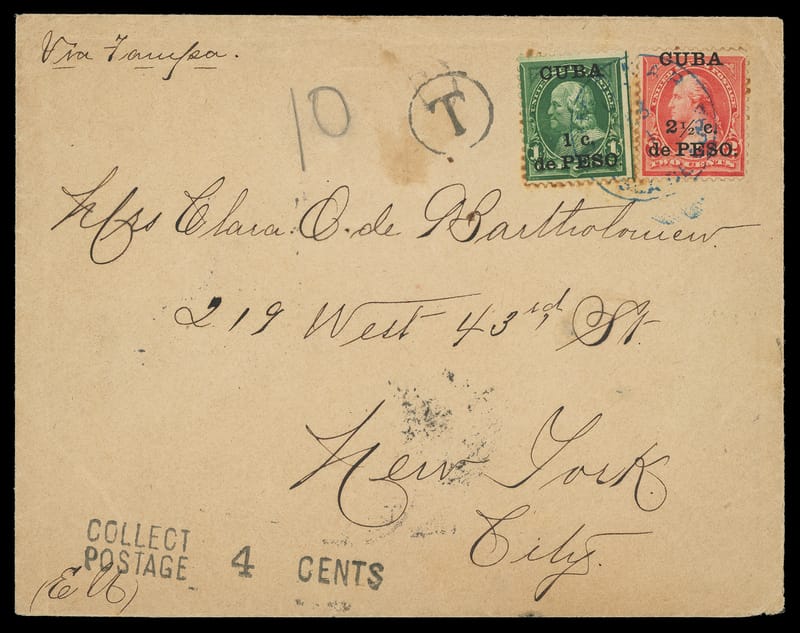 Via Tampa.
10
T
CUBA
1 c.
de PESO.
1 1
CUBA
2½ c.
de PESO.
TWO CENTS
Miss Clara. O. de Bartholomew.
219 West 43rd St.
New York
City.
COLLECT
POSTAGE 4 CENTS
(E U)